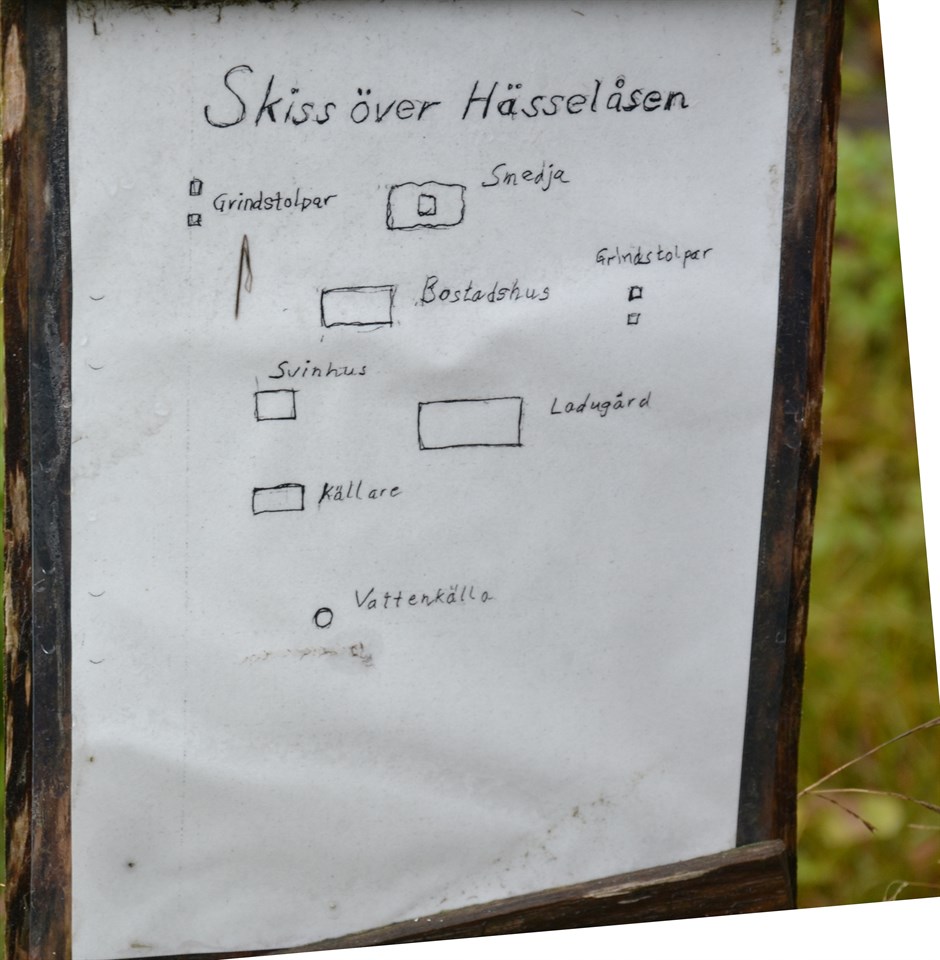 Skiss över Hässelåsen
Smedja
Grindstolpar
Grindstolpar
Bostadshus
Svinhus
Ladugård
Källare
Vattenkälla